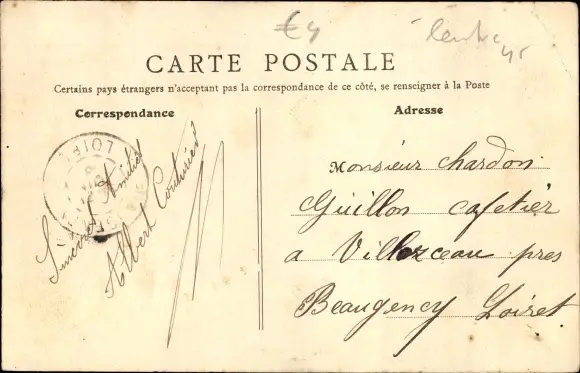 €4
CARTE POSTALE
Certains pays étrangers n'acceptant pas la correspondance de ce côté, se renseigner à la Poste
Correspondance
Adresse
LOIRET
Sincères Amitiés
Albert
Monsieur Chardon
Guillon cafetier
a Villorceau pres
Beaugency Loiret